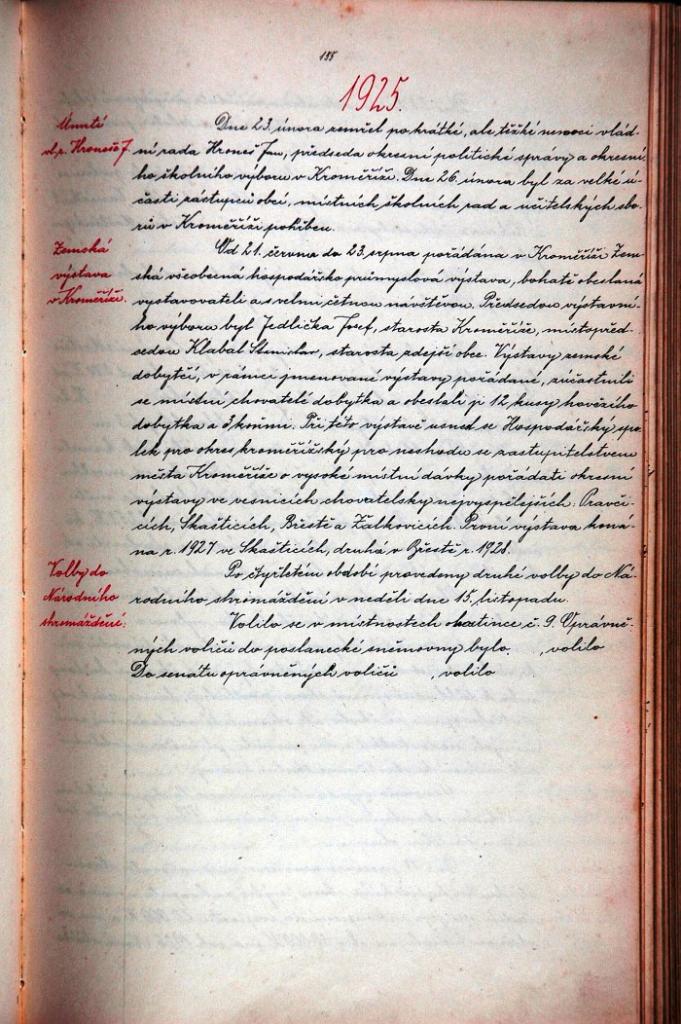 188
1925.
Úmrtí
vl. r. Kroneše J
Dne 23. února zemřel po krátké, ale těžké nemoci vlád-
ní rada Kroneš Jan, předseda okresní politické správy a okresní-
ho školního výboru v Kroměříži. Dne 26. února byl za velké ú-
časti zástupců obcí, místních školních rad a učitelských sbo-
rů v Kroměříži pohřben.
Zemská
výstava
v Kroměříži.
Od 21. června do 23. srpna pořádána v Kroměříži Zem-
ská všeobecná hospodářsko průmyslová výstava, bohatě obeslaná
vystavovateli a s velmi četnou návštěvou. Předsedou výstavní-
ho výboru byl Jedlička Josef, starosta Kroměříže, místopřed-
sedou Klabal Stanislav, starosta zdejší obce. Výstavy zemské
dobytčí, v rámci jmenované výstavy pořádané, zúčastnili
se místní chovatelé dobytka a obeslali ji 12 kusy hovězího
dobytka a 3 koňmi. Při této výstavě usnesl se Hospodářský spo-
lek pro okres kroměřížský pro neshodu se zastupitelstvem
města Kroměříže o vysoké místní dávky pořádati okresní
výstavy ve vesnicích chovatelsky nejvyspělejších: Pravči-
cích, Skašticích, Břestě a Žalkovicích. První výstava koná-
na r. 1927 ve Skašticích, druhá v Břestě r. 1928.
Volby do
Národního
shromáždění:
Po čtyřletém období provedeny druhé volby do Ná-
rodního shromáždění v neděli dne 15. listopadu.
Volilo se v místnostech obecních č. 9. Oprávně-
ných voličů do poslanecké sněmovny bylo , volilo
Do senátu oprávněných voličů , volilo